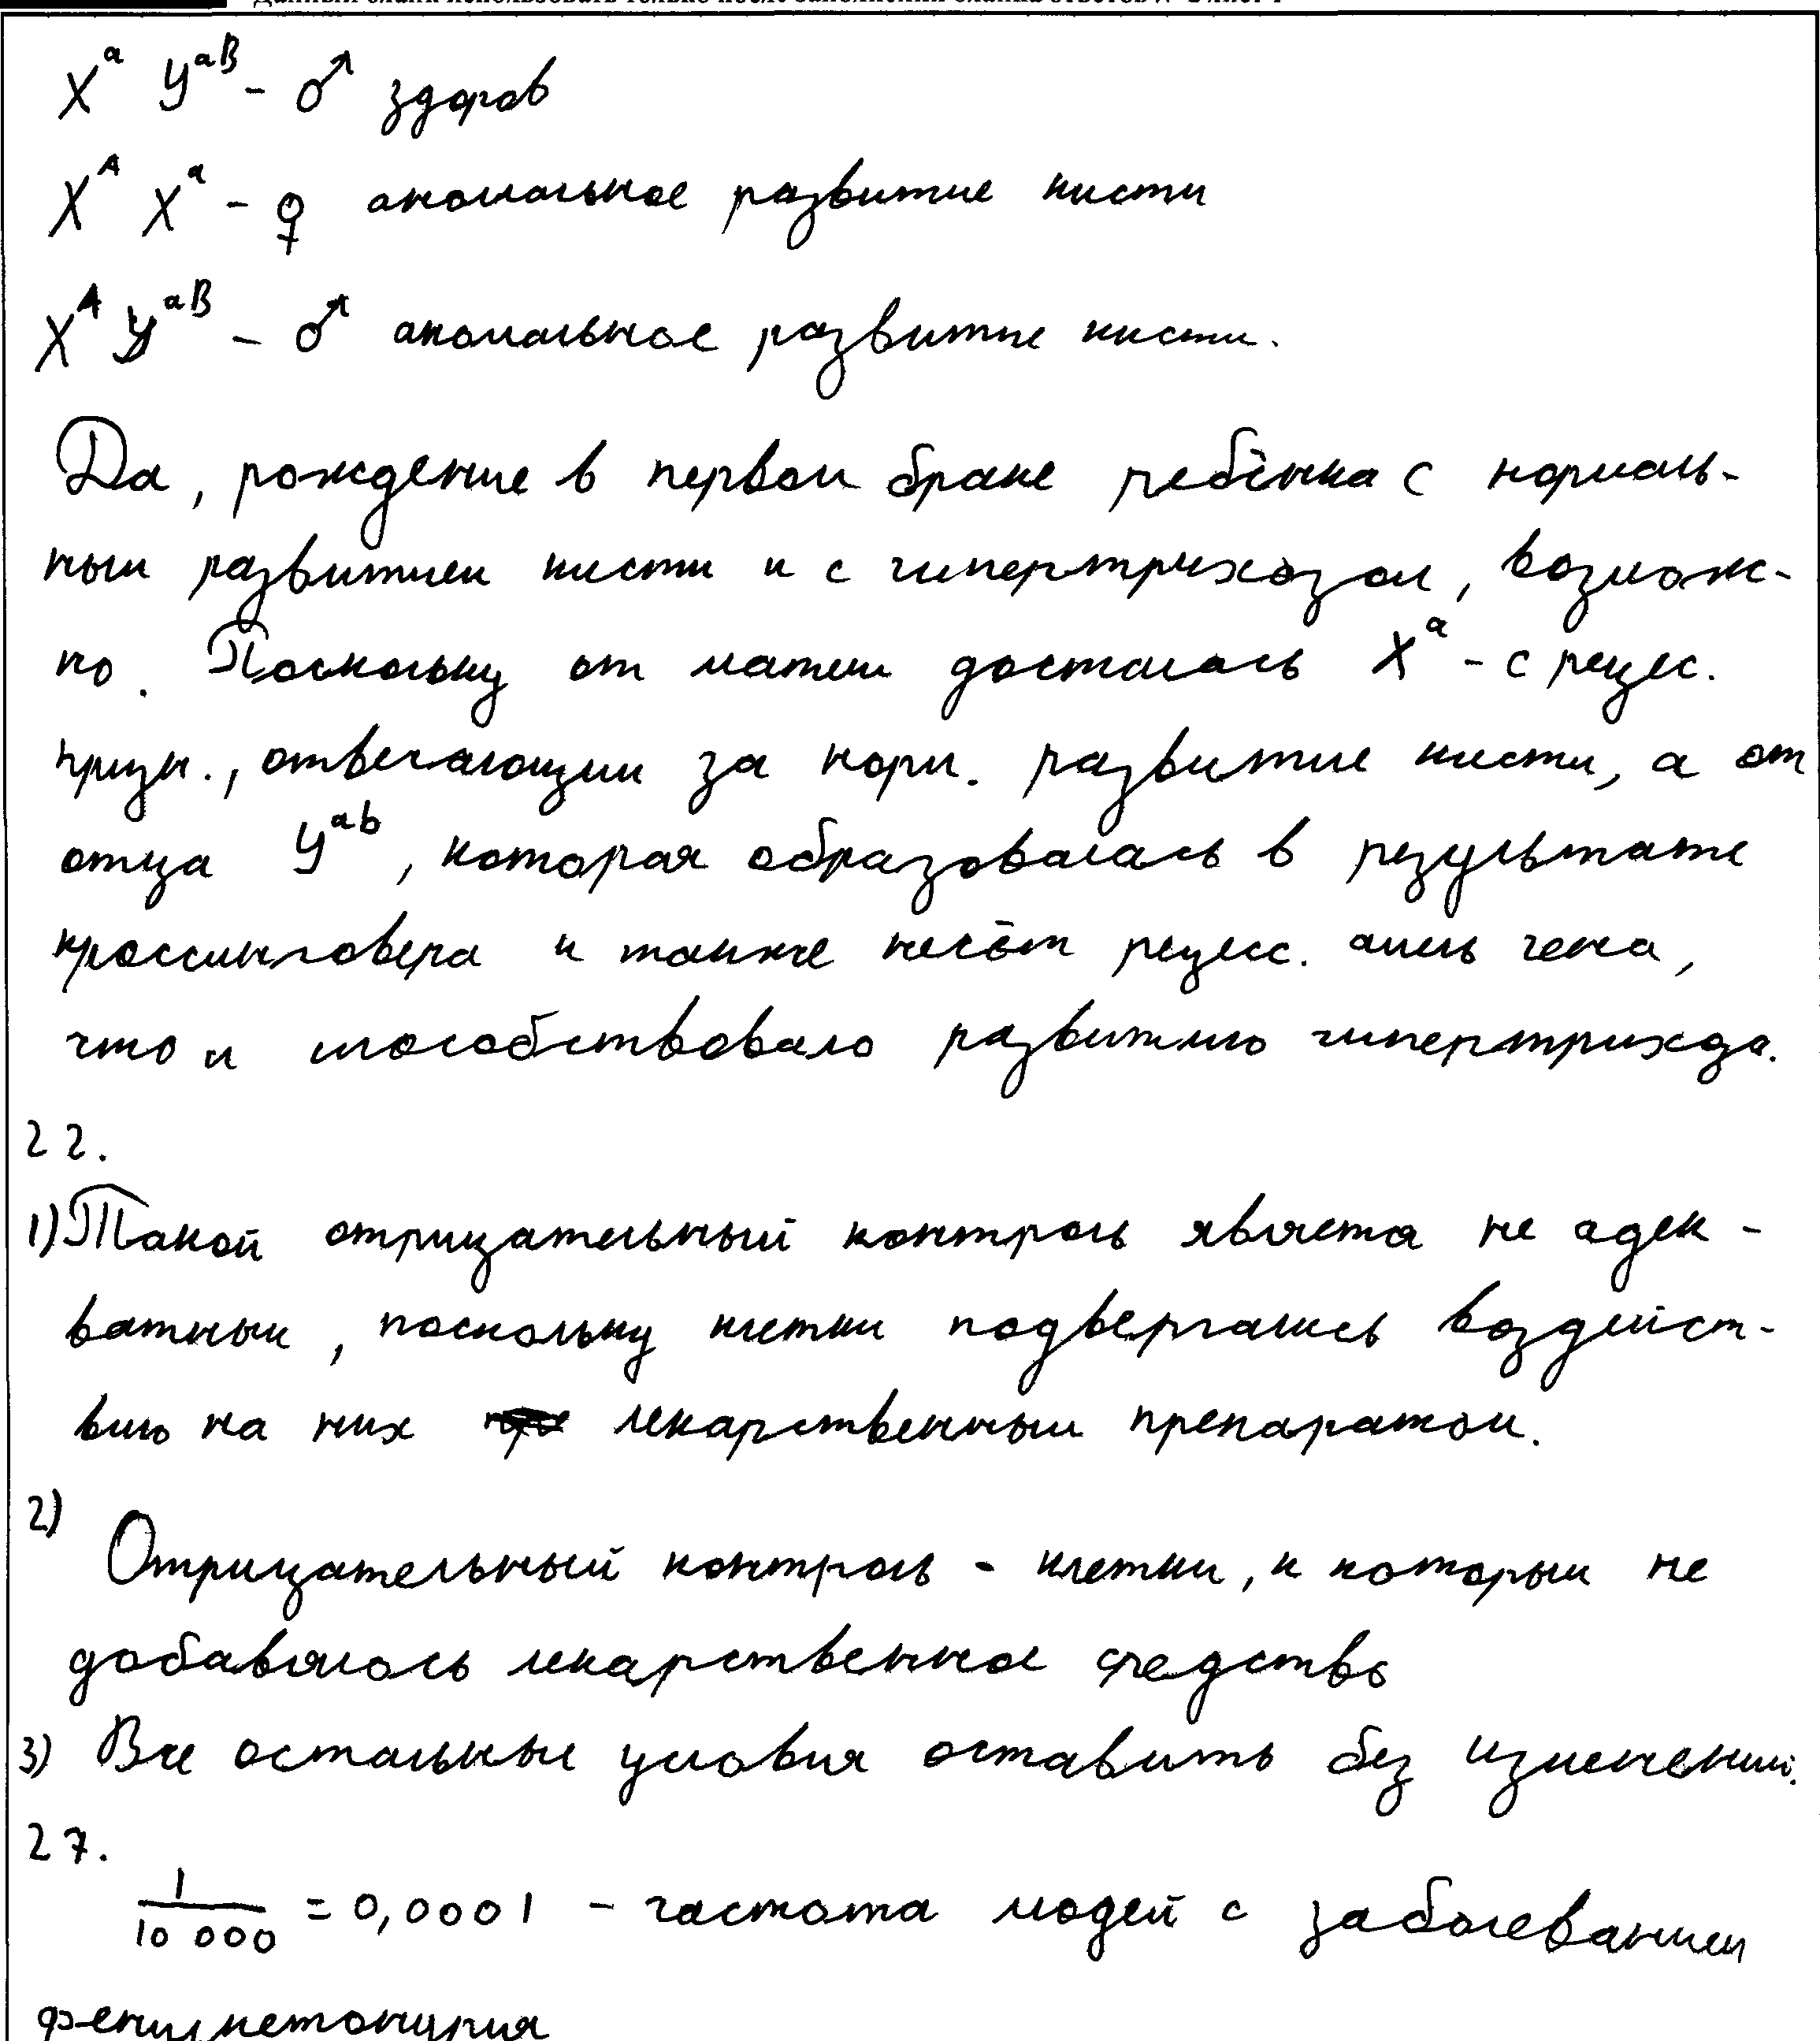 X^a У^aB - ♂ здоров
X^A X^a - ♀ аномальное развитие кисти
X^A У^aB - ♂ аномальное развитие кисти.
Да, рождение в первом браке ребёнка с нормаль-
ным развитием кисти и с гипертрихозом, возмож-
но. Поскольку от матери досталась X^a - с рецес.
призн., отвечающим за норм. развитие кисти, а от
отца У^ab, которая образовалась в результате
кроссинговера и также несёт рецесс. алель гена,
что и способствовало развитию гипертрихоза.
22.
1) Такой отрицательный контроль является не адек-
ватным, поскольку клетки подвергались воздейст-
вию на них лекарственным препаратом.
2)
Отрицательный контроль - клетки, к которым не
добавлялось лекарственное средство
3) Все остальные условия оставить без изменений.
27.
1/10 000 = 0,0001 - частота людей с заболеванием
фенилкетонурия